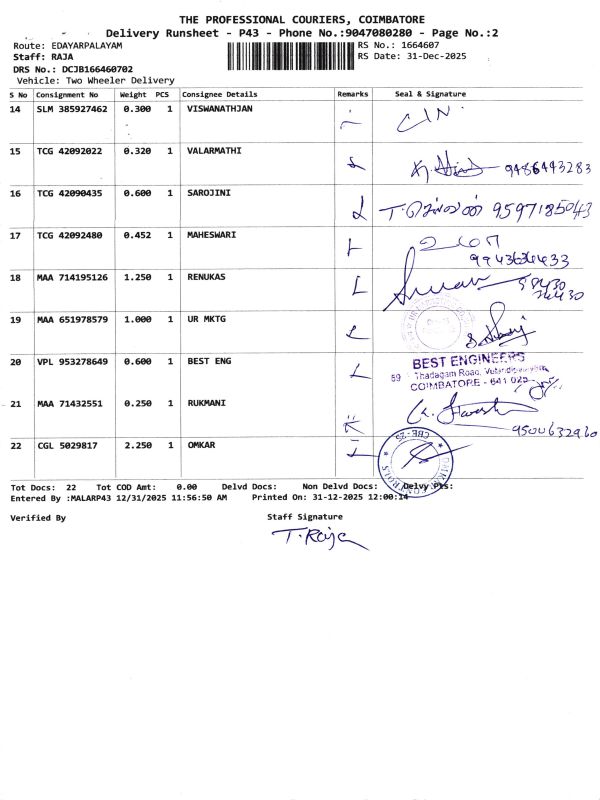 THE PROFESSIONAL COURIERS, COIMBATORE
Delivery Runsheet - P43 - Phone No.:9047080280 - Page No.:2
Route: EDAYARPALAYAM
RS No.: 1664607
Staff: RAJA
RS Date: 31-Dec-2025
DRS No.: DCJB166460702
Vehicle: Two Wheeler Delivery
S No Consignment No Weight PCS Consignee Details Remarks Seal & Signature
14 SLM 385927462 0.300 1 VISWANATHJAN
15 TCG 42092022 0.320 1 VALARMATHI 9486443283
16 TCG 42090435 0.600 1 SAROJINI 9597185043
17 TCG 42092480 0.452 1 MAHESWARI
18 MAA 714195126 1.250 1 RENUKAS
19 MAA 651978579 1.000 1 UR MKTG
20 VPL 953278649 0.600 1 BEST ENG
BEST ENGINEERS
Thadagam Road,
COIMBATORE - 641 025
21 MAA 71432551 0.250 1 RUKMANI
9500632960
22 CGL 5029817 2.250 1 OMKAR
CBE-25
Tot Docs: 22 Tot COD Amt: 0.00 Delvd Docs: Non Delvd Docs: Delvy Pts:
Entered By :MALARP43 12/31/2025 11:56:50 AM Printed On: 31-12-2025 12:00:14
Verified By Staff Signature
T. Raja